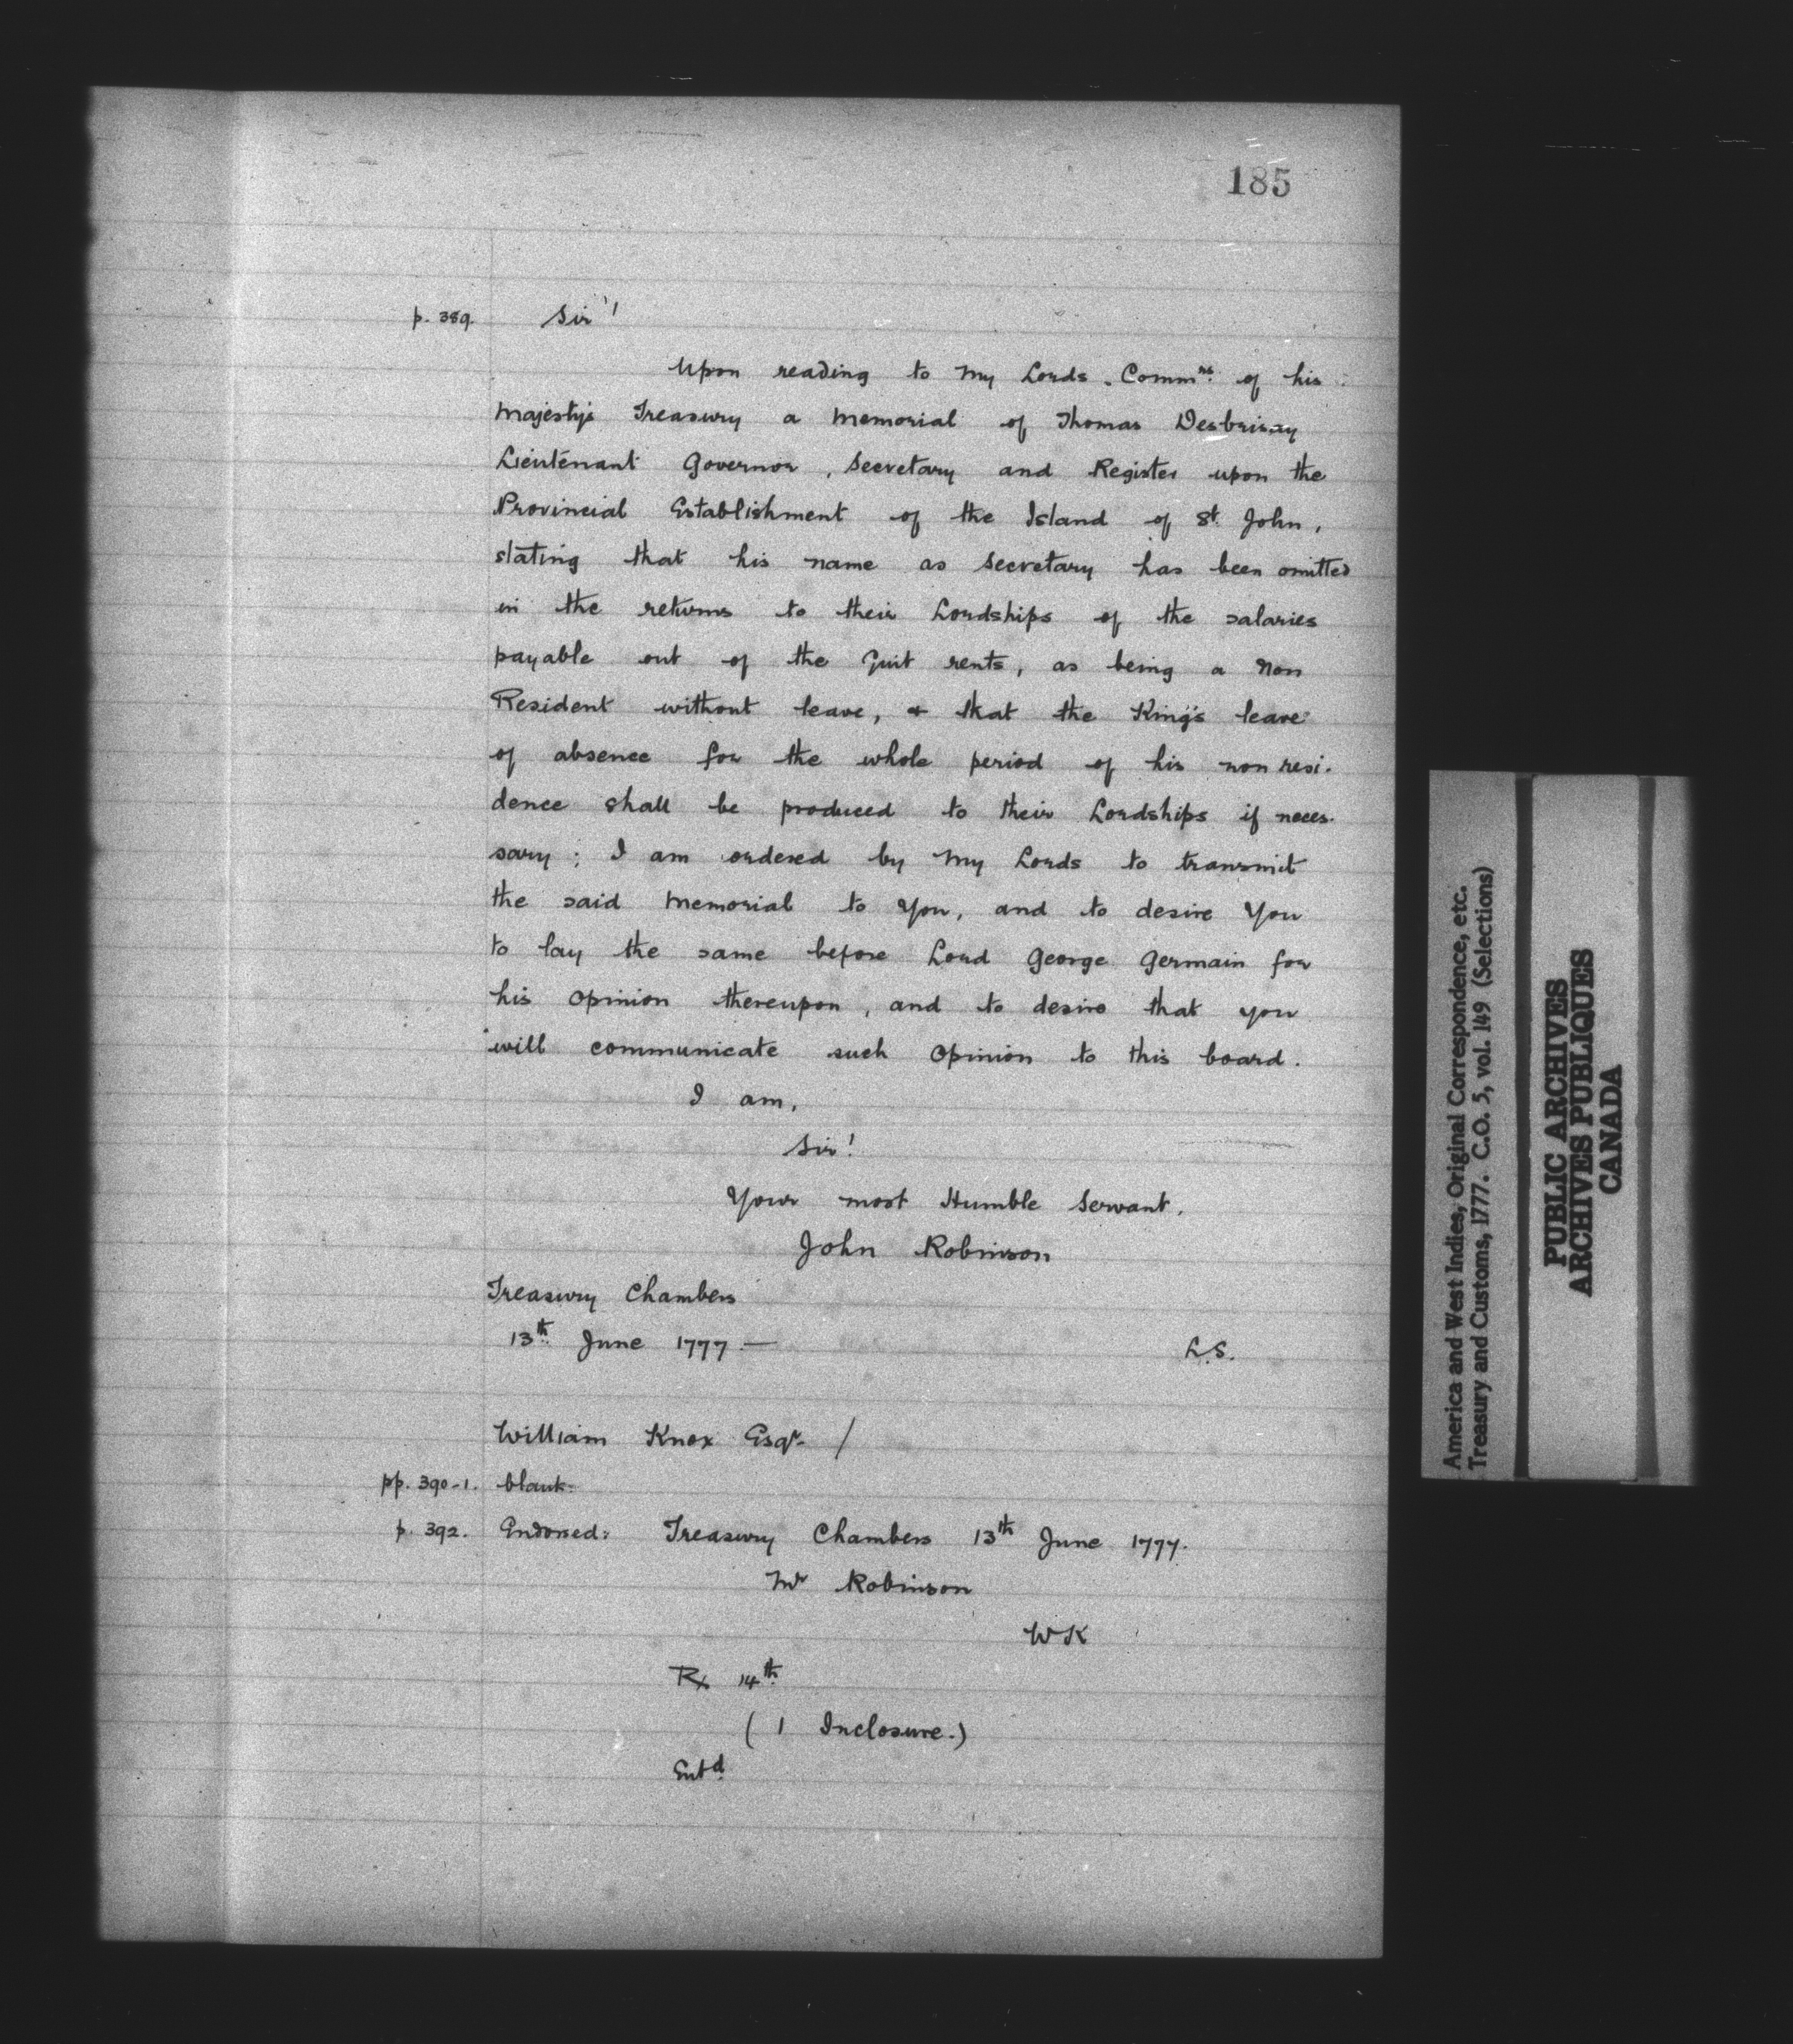 185
p. 389. Sir!
Upon reading to My Lords Comm.rs of his
Majesty's Treasury a Memorial of Thomas Desbrisay
Lieutenant Governor, Secretary and Register upon the
Provincial Establishment of the Island of St. John,
stating that his name as Secretary has been omitted
in the returns to their Lordships of the salaries
payable out of the Quit rents, as being a Non
Resident without leave, & that the King's leave
of absence for the whole period of his non resi-
dence shall be produced to their Lordships if neces-
sary; I am ordered by My Lords to transmit
the said Memorial to You, and to desire You
to lay the same before Lord George Germain for
his Opinion thereupon, and to desire that you
will communicate such Opinion to this board.
I am,
Sir!
Your most Humble Servant.
John Robinson
Treasury Chambers
13th June 1777 —
L.S.
William Knox Esqr. /
pp. 390-1. blank.
p. 392. Endorsed: Treasury Chambers 13th June 1777.
Mr Robinson
WK
Rx 14th
( 1 Inclosure.)
Entd
America and West Indies, Original Correspondence, etc.
Treasury and Customs, 1777. C.O. 5, vol. 149 (Selections)
PUBLIC ARCHIVES
ARCHIVES PUBLIQUES
CANADA